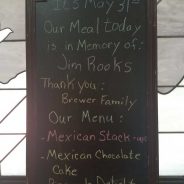 It's May 31st
Our Meal today
is in Memory of:
Jim Rooks
Thank you:
Brewer Family
Our Menu:
- Mexican Stack-ups
- Mexican Chocolate
Cake